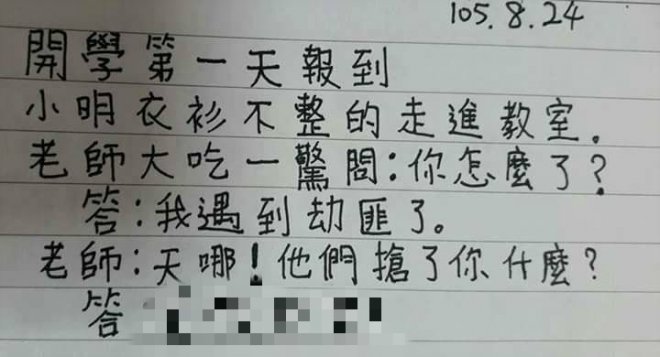 105.8.24
開學第一天報到
小明衣衫不整的走進教室.
老師大吃一驚問:你怎麼了?
答:我遇到劫匪了。
老師:天哪!他們搶了你什麼?
答